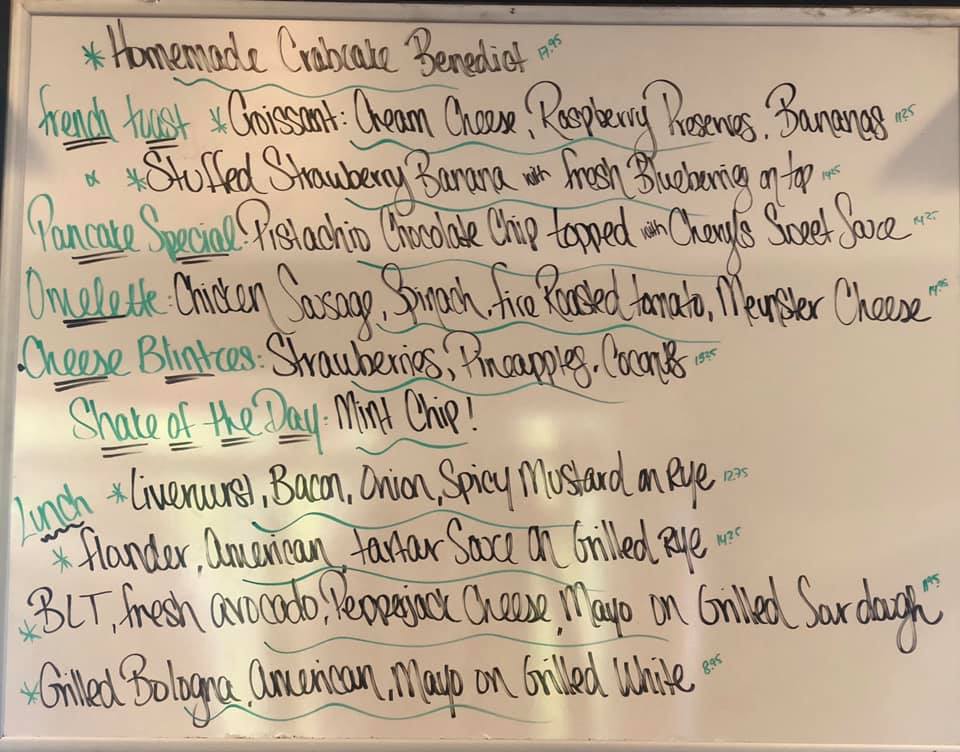 * Homemade Crabcake Benedict 17.95
french toast * Croissant: Cream Cheese, Raspberry Preserves, Bananas 11.25
or * Stuffed Strawberry Banana with fresh Blueberries on top
Pancake Special: Pistachio Chocolate Chip topped with Cheryl's Sweet Sauce 14.25
Omelette: Chicken Sausage, Spinach, fire Roasted tomato, Meunster Cheese 14.95
Cheese Blintzes: Strawberries, Pineapples, Coconuts
Shake of the Day: Mint Chip!
Lunch * Liverwurst, Bacon, Onion, Spicy Mustard on Rye 12.75
* flounder, American, tartar Sauce on Grilled Rye 14.25
* BLT, fresh avocado, Pepperjack Cheese, Mayo on Grilled Sourdough
* Grilled Bologna, American, Mayo on Grilled White 8.95